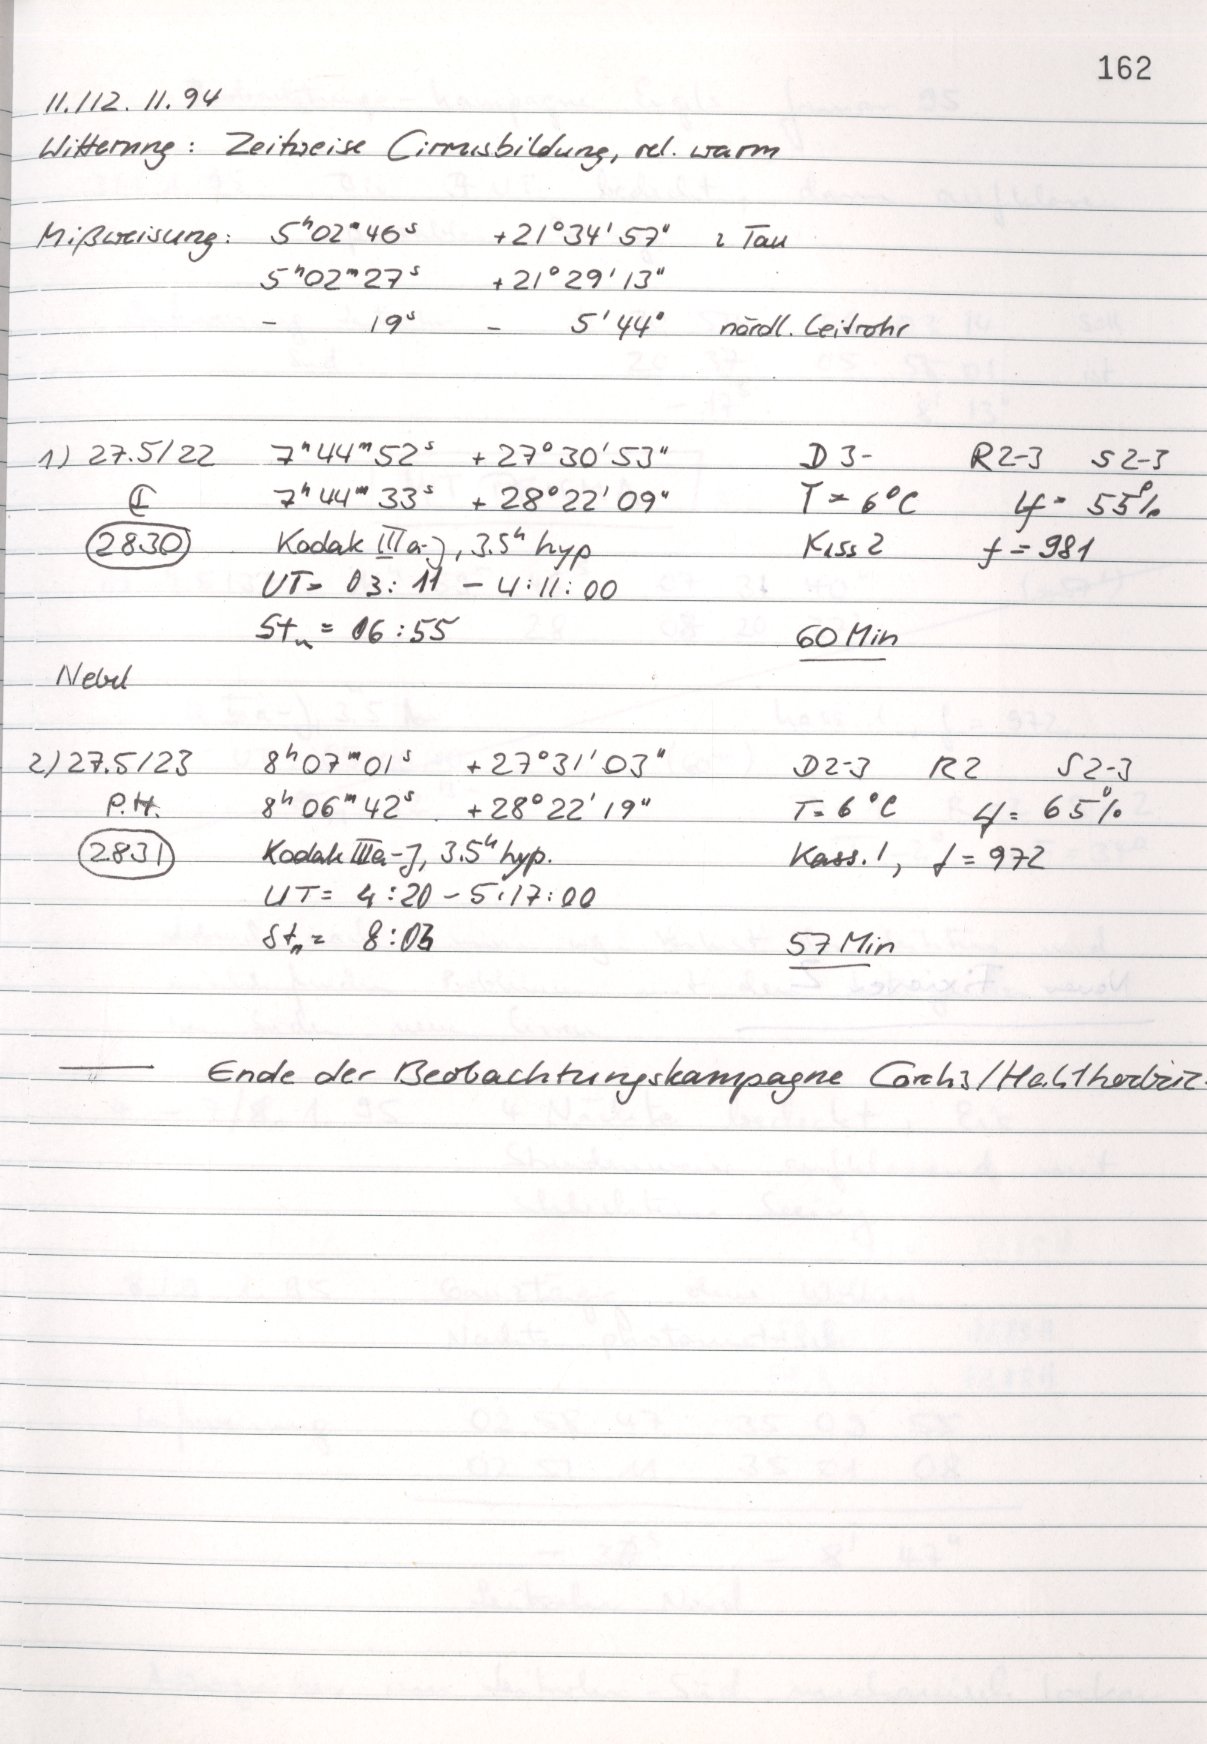 162
11./12. 11. 94
Witterung: Zeitweise Cirrusbildung, rel. warm
Mißweisung: 5ʰ02ᵐ46ˢ +21°34'57" ι Tau
5ʰ02ᵐ27ˢ +21°29'13"
- 19ˢ - 5'44" nördl. Leitrohr
1) 27.5/22 7ʰ44ᵐ52ˢ +27°30'53" D 3- R2-3 S2-3
7ʰ44ᵐ33ˢ +28°22'09" T = 6°C Lf = 55%
2830 Kodak IIIa-J, 3.5ʰ hyp f = 981
UT= 03:11 - 4:11:00
Stₙ = 06:55 60 Min
Nebel
2) 27.5/23 8ʰ07ᵐ01ˢ +27°31'03" D2-3 R2 S2-3
P.H. 8ʰ06ᵐ42ˢ +28°22'19" T= 6°C Lf= 65%
2831 Kodak IIIa-J, 3.5ʰ hyp. Kass. 1, f = 972
UT= 4:20 - 5:17:00
Stₙ= 8:03 57 Min
— Ende der Beobachtungskampagne